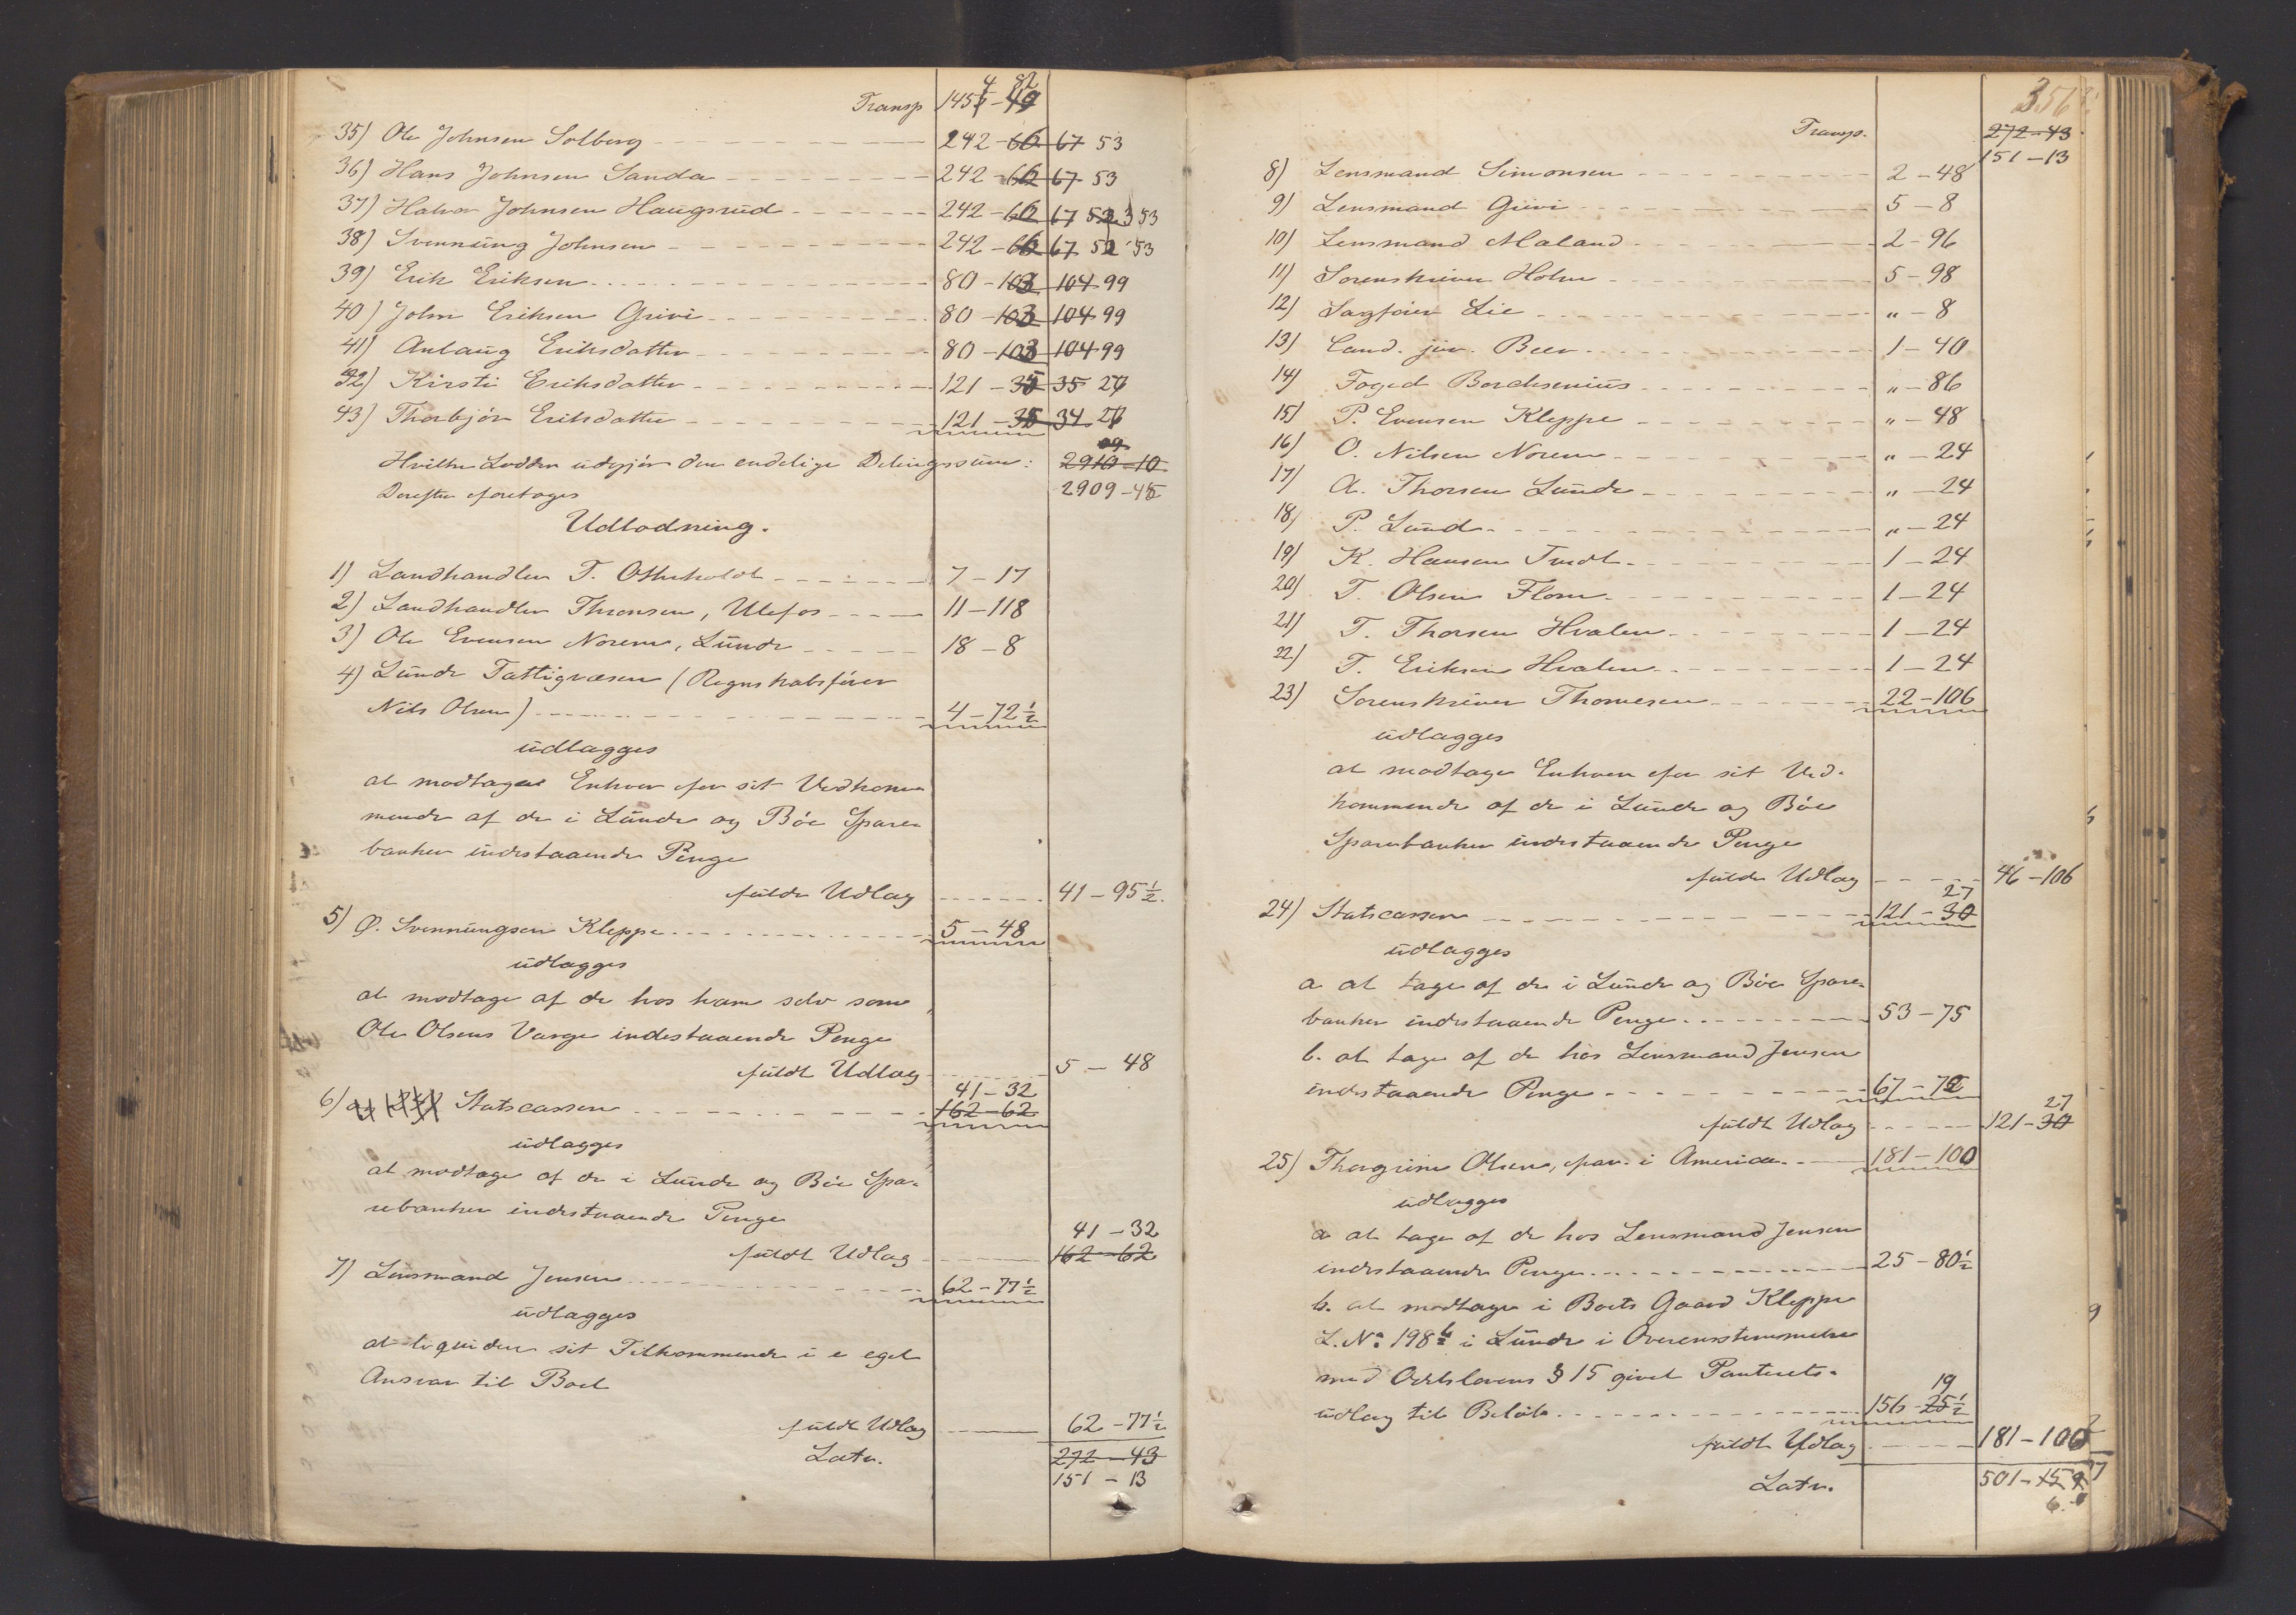 Transp 1454 - 82
35) Ole Johnsen Solberg 242 - 66 67 53
36) Hans Johnsen Sanda 242 - 66 67 53
37) Halvor Johnsen Haugsrud 242 - 66 67 53
38) Svennung Johnsen 242 - 66 67 52 53
39) Erik Eriksen 80 - 103 104 99
40) John Eriksen Grivi 80 - 103 104 99
41) Anlaug Eriksdatter 80 - 103 104 99
42) Kirsti Eriksdatter 121 - 35 35 27
43) Thorbjør Eriksdatter 121 - 35 34 27
09
Hvilke Lodder udgjør den endelige Delingssum: 2910 - 10
Derefter foretoges 2909 - 45
Udlodning.
1) Landhandler T. Otterholdt 7 - 17
2) Landhandler Thronsen, Ulefos 11 - 118
3) Ole Evensen Norem, Lunde 18 - 8
4) Lunde Fattigvæsen (Regnskabsfører
Nils Olsen) 4 - 72 1/2
udlægges
at modtage Enhver for sit Vedkom-
mende af de i Lunde og Böe Spare-
banker indestaaende Penge
fulde Udlæg 41 - 95 1/2.
5) O. Svennungsen Kleppe 5 - 48
udlægges
at modtage af de hos ham selv som
Ole Olsens Værge indestaaende Penge
fuldt Udlæg 5 - 48
41 - 32
6) Statscassen 162 - 62
udlægges
at modtage af de i Lunde og Böe Spa-
rebanker indestaaende Penge
41 - 32
fuldt Udlæg 162 - 62
7) Lensmand Jensen 62 - 77 1/2
udlægges
at liqvidere sit Tilkommende i e eget
Ansvar til Boet
fuldt Udlæg 62 - 77 1/2
Latr. 272 - 43
151 - 13
356
Transp. 272 - 43
151 - 13
8) Lensmand Simonsen 2 - 48
9) Lensmand Giivi 5 - 8
10) Lensmand Maland 2 - 96
11) Sorenskriver Holm 5 - 98
12) Sagfører Lie " - 8
13) Cand. jur. Beer 1 - 40
14) Foged Borchsenius " - 86
15) P. Evensen Kleppe " - 48
16) O. Nilsen Norem " - 24
17) A. Thorsen Lunde " - 24
18) P. Lund " - 24
19) K. Hansen Tvedt 1 - 24
20) T. Olsen Flom 1 - 24
21) T. Thorsen Hvalen 1 - 24
22) T. Eriksen Hvalen 1 - 24
23) Sorenskriver Thomesen 22 - 106
udlægges
at modtage Enhver for sit Ved-
kommende af de i Lunde og Böe
Sparebanker indestaaende Penge
fulde Udlæg 46 - 106
27
24) Statscassen 121 - 30
udlægges
a at tage af de i Lunde og Böe Spare-
banker indestaaende Penge 53 - 75
b. at tage af de hos Lensmand Jensen
indestaaende Penge 67 - 72
27
fuldt Udlæg 121 - 30
25) Thorgrim Olsen, frav. i America 181 - 100
udlægges
a at tage af de hos Lensmand Jensen
indestaaende Penge 25 - 80 1/2
b. at modtage i Boets Gaard Kleppe
L. No 198 b i Lunde i Overensstemmelse
med Odelslovens § 15 givet Panterets-
19
udlæg til Beløb 156 - 25 1/2
fuldt Udlæg 181 - 100
Latr. 501 - 159
6.